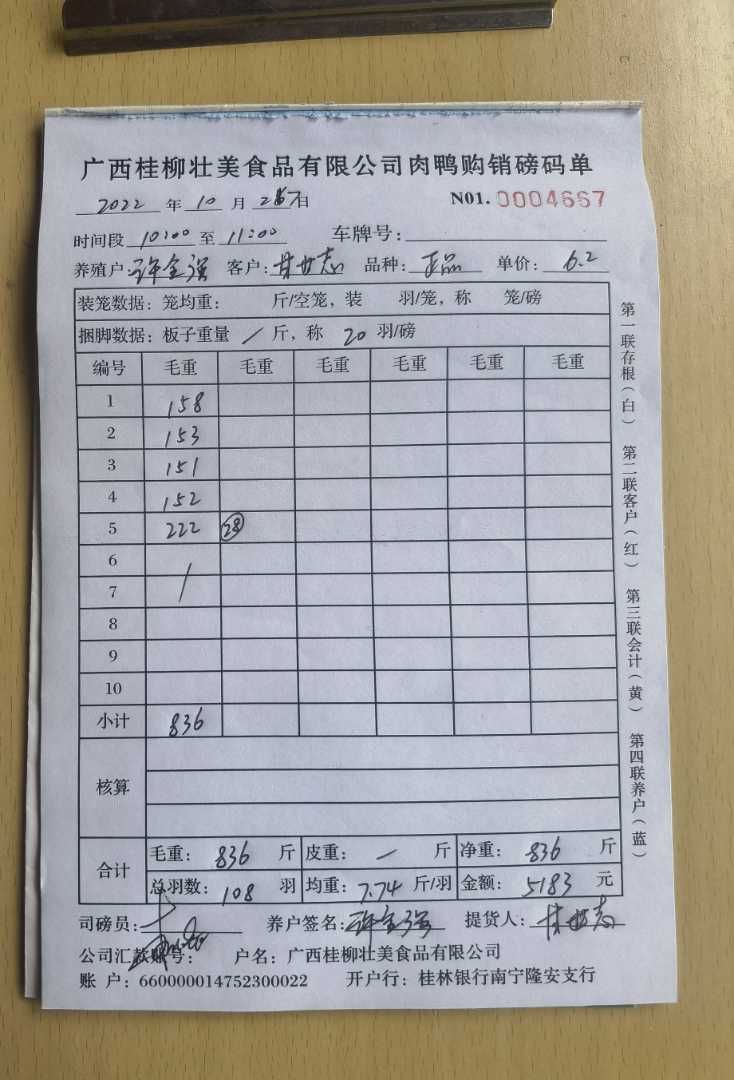 广西桂柳壮美食品有限公司肉鸭购销磅码单
2022 年 10 月 日 N01. 0004667
时间段 10:00 至 11:00 车牌号:
养殖户: 许全强 客户: 甘世志 品种: 正品 单价: 6.2
装笼数据: 笼均重: 斤/空笼, 装 羽/笼, 称 笼/磅
捆脚数据: 板子重量 / 斤, 称 20 羽/磅
编号 毛重 毛重 毛重 毛重 毛重 毛重
1 158
2 153
3 151
4 152
5 222 28
6
7 /
8
9
10
小计 836
核算
合计 毛重: 836 斤 皮重: 一 斤 净重: 836 斤
总羽数: 108 羽 均重: 7.74 斤/羽 金额: 5183 元
司磅员: 养户签名: 许全强 提货人: 甘世志
公司汇款账号: 户名: 广西桂柳壮美食品有限公司
账 户: 660000014752300022 开户行: 桂林银行南宁隆安支行
第一联存根(白) 第二联客户(红) 第三联会计(黄) 第四联养户(蓝)